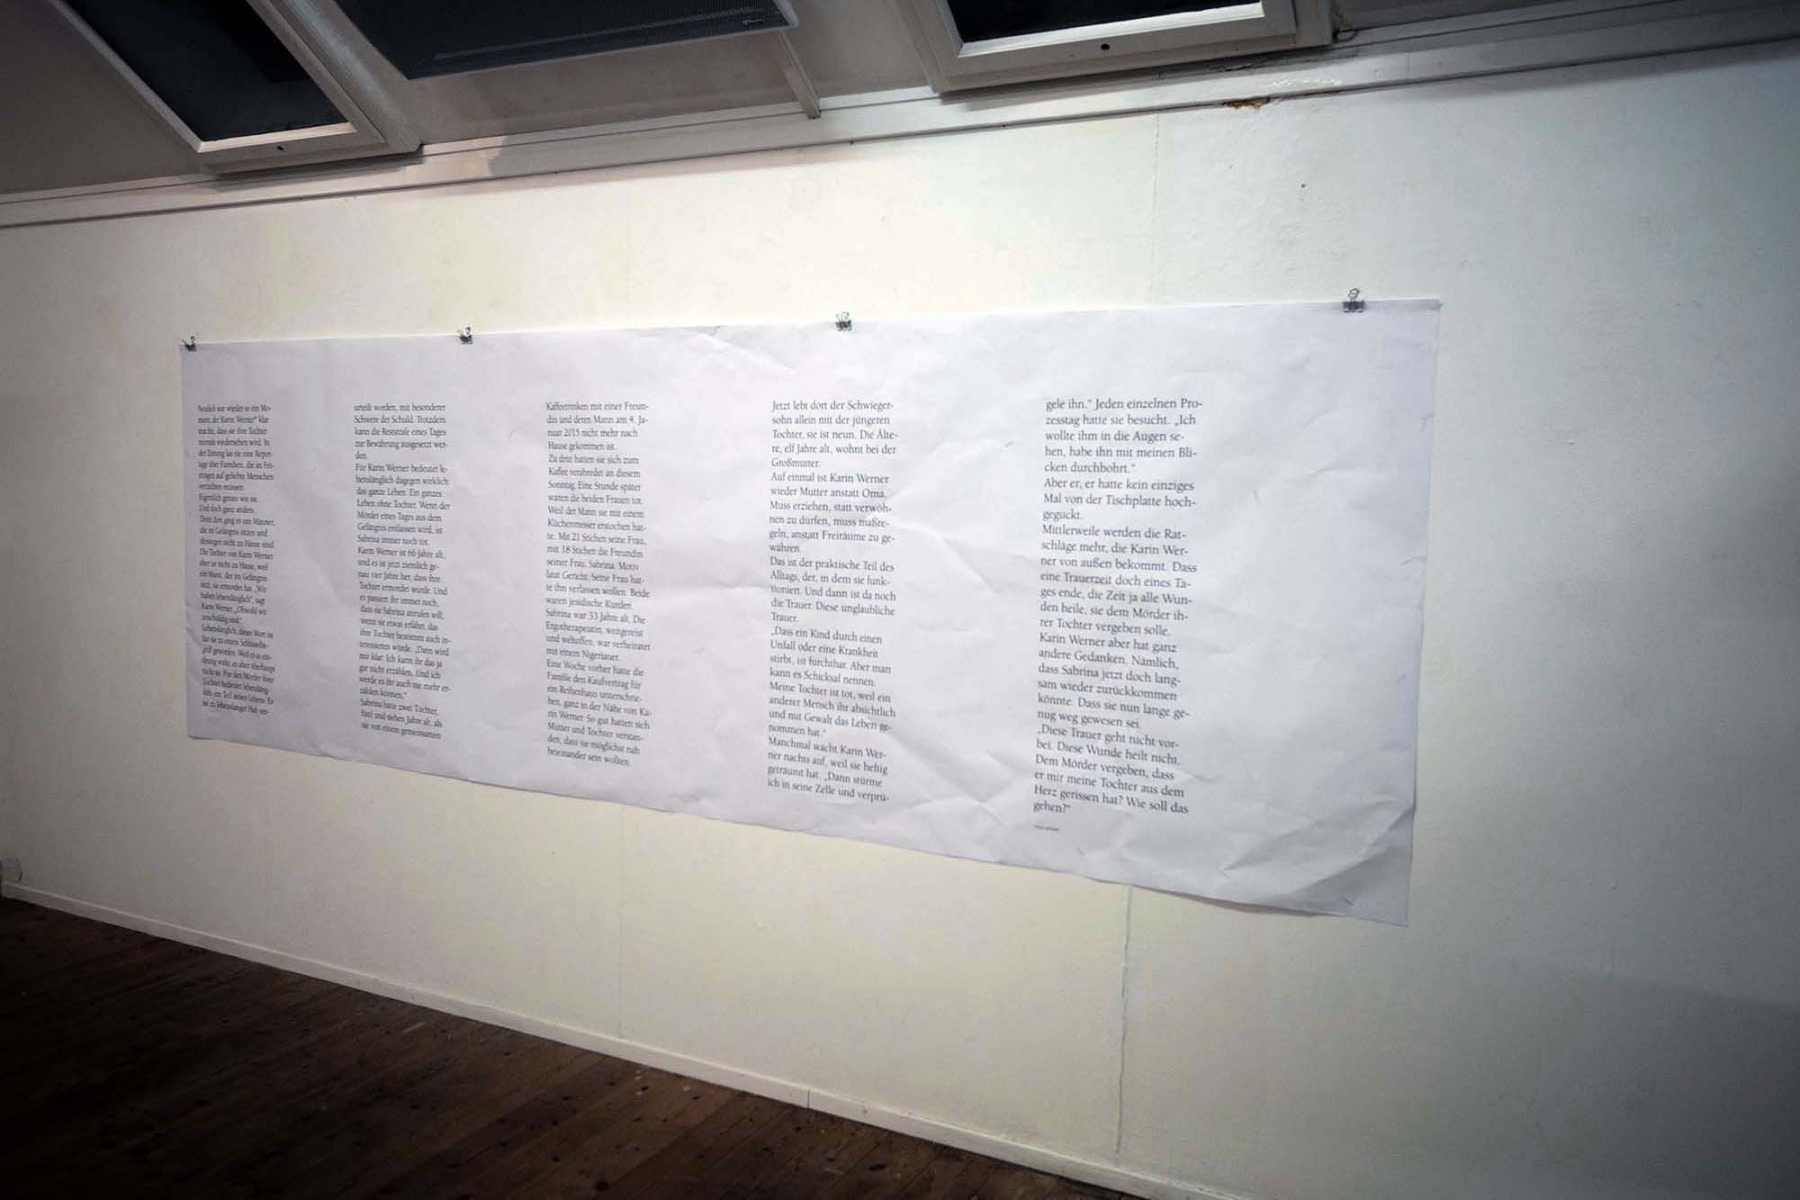 Neulich war wieder so ein Mo-
ment, der Karin Werner* klar
machte, dass sie ihre Tochter
niemals wiedersehen wird. In
der Zeitung las sie eine Repor-
tage über Familien, die an Fei-
ertagen auf geliebte Menschen
verzichten müssen.
Eigentlich genau wie sie.
Und doch ganz anders.
Denn dort ging es um Männer,
die im Gefängnis sitzen und
deswegen nicht zu Hause sind.
Die Tochter von Karin Werner
aber ist nicht zu Hause, weil
ein Mann, der im Gefängnis
sitzt, sie ermordet hat. „Wir
haben lebenslänglich“, sagt
Karin Werner. „Obwohl wir
unschuldig sind.“
Lebenslänglich, dieses Wort ist
für sie zu einem Schlüsselbe-
griff geworden. Weil es so ein-
deutig wirkt, es aber überhaupt
nicht ist. Für den Mörder ihrer
Tochter bedeutet lebensläng-
lich: ein Teil seines Lebens. Er
ist zu lebenslanger Haft ver-
urteilt worden, mit besonderer
Schwere der Schuld. Trotzdem
kann die Reststrafe eines Tages
zur Bewährung ausgesetzt wer-
den.
Für Karin Werner bedeutet le-
benslänglich dagegen wirklich:
das ganze Leben. Ein ganzes
Leben ohne Tochter. Wenn der
Mörder eines Tages aus dem
Gefängnis entlassen wird, ist
Sabrina immer noch tot.
Karin Werner ist 66 Jahre alt,
und es ist jetzt ziemlich ge-
nau vier Jahre her, dass ihre
Tochter ermordet wurde. Und
es passiert ihr immer noch,
dass sie Sabrina anrufen will,
wenn sie etwas erfährt, das
ihre Tochter bestimmt auch in-
teressieren würde. „Dann wird
mir klar: Ich kann ihr das ja
gar nicht erzählen. Und ich
werde es ihr auch nie mehr er-
zählen können.“
Sabrina hatte zwei Töchter,
fünf und sieben Jahre alt, als
sie von einem gemeinsamen
Kaffeetrinken mit einer Freun-
din und deren Mann am 4. Ja-
nuar 2015 nicht mehr nach
Hause gekommen ist.
Zu dritt hatten sie sich zum
Kaffee verabredet an diesem
Sonntag. Eine Stunde später
waren die beiden Frauen tot.
Weil der Mann sie mit einem
Küchenmesser erstochen hat-
te. Mit 21 Stichen seine Frau,
mit 18 Stichen die Freundin
seiner Frau, Sabrina. Motiv
laut Gericht: Seine Frau hat-
te ihn verlassen wollen. Beide
waren jesidische Kurden.
Sabrina war 33 Jahre alt. Die
Ergotherapeutin, weitgereist
und weltoffen, war verheiratet
mit einem Nigerianer.
Eine Woche vorher hatte die
Familie den Kaufvertrag für
ein Reihenhaus unterschrie-
ben, ganz in der Nähe von Ka-
rin Werner. So gut hatten sich
Mutter und Tochter verstan-
den, dass sie möglichst nah
beieinander sein wollten.
Jetzt lebt dort der Schwieger-
sohn allein mit der jüngeren
Tochter, sie ist neun. Die Älte-
re, elf Jahre alt, wohnt bei der
Großmutter.
Auf einmal ist Karin Werner
wieder Mutter anstatt Oma.
Muss erziehen, statt verwöh-
nen zu dürfen, muss maßre-
geln, anstatt Freiräume zu ge-
währen.
Das ist der praktische Teil des
Alltags, der, in dem sie funk-
tioniert. Und dann ist da noch
die Trauer. Diese unglaubliche
Trauer.
„Dass ein Kind durch einen
Unfall oder eine Krankheit
stirbt, ist furchtbar. Aber man
kann es Schicksal nennen.
Meine Tochter ist tot, weil ein
anderer Mensch ihr absichtlich
und mit Gewalt das Leben ge-
nommen hat.“
Manchmal wacht Karin Wer-
ner nachts auf, weil sie heftig
geträumt hat. „Dann stürme
ich in seine Zelle und verprü-
gele ihn.“ Jeden einzelnen Pro-
zesstag hatte sie besucht. „Ich
wollte ihm in die Augen se-
hen, habe ihn mit meinen Bli-
cken durchbohrt.“
Aber er, er hatte kein einziges
Mal von der Tischplatte hoch-
geguckt.
Mittlerweile werden die Rat-
schläge mehr, die Karin Wer-
ner von außen bekommt. Dass
eine Trauerzeit doch eines Ta-
ges ende, die Zeit ja alle Wun-
den heile, sie dem Mörder ih-
rer Tochter vergeben solle.
Karin Werner aber hat ganz
andere Gedanken. Nämlich,
dass Sabrina jetzt doch lang-
sam wieder zurückkommen
könnte. Dass sie nun lange ge-
nug weg gewesen sei.
„Diese Trauer geht nicht vor-
bei. Diese Wunde heilt nicht.
Dem Mörder vergeben, dass
er mir meine Tochter aus dem
Herz gerissen hat? Wie soll das
gehen?“